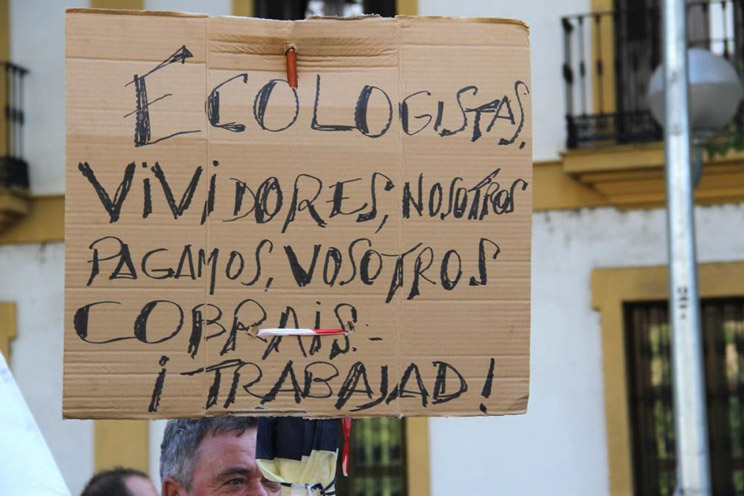 ÉCOLOGISTAS,
ViViDORES, NOSOTROS
PAGAMOS, VOSOTROS
COBRAIS.-
¡TRABAJAD!